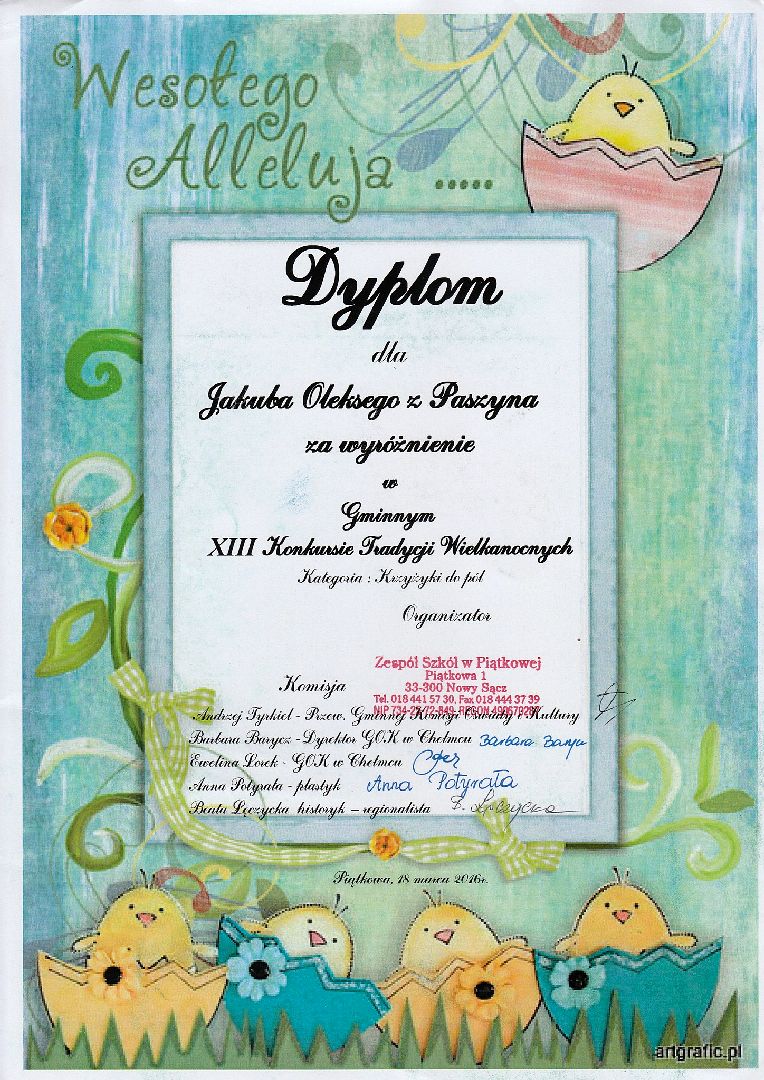 Wesołego
Alleluja .....
Dyplom
dla
Jakuba Oleksego z Paszyna
za wyróżnienie
w
Gminnym
XIII Konkursie Tradycji Wielkanocnych
Kategoria : Krzyżyki do pól
Organizator
Zespół Szkół w Piątkowej
Piątkowa 1
33-300 Nowy Sącz
Tel. 018 441 57 30, Fax 018 444 37 39
Komisja
NIP 734-25-72-849
Andrzej Tyrkiel - Przew. Gminnej Komisji Oświaty i Kultury
Barbara Barycz - Dyrektor GOK w Chełmcu
Ewelina Lorek - GOK w Chełmcu
Anna Potyrała - plastyk Anna Potyrała
Beata Łęczycka historyk – regionalista B. Łęczycka
Piątkowa, 18 marca 2016r.
artgrafic.pl